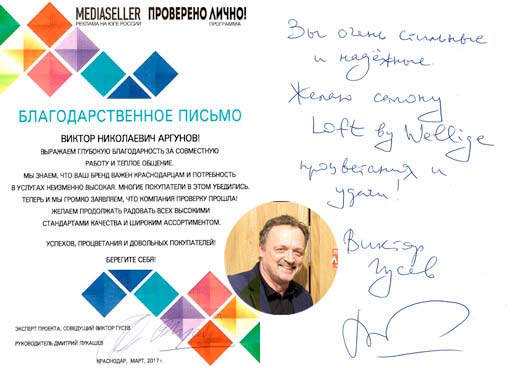 MEDIASELLER
РЕКЛАМА НА ЮГЕ РОССИИ
ПРОВЕРЕНО ЛИЧНО!
ПРОГРАММА
БЛАГОДАРСТВЕННОЕ ПИСЬМО
ВИКТОР НИКОЛАЕВИЧ АРГУНОВ!
ВЫРАЖАЕМ ГЛУБОКУЮ БЛАГОДАРНОСТЬ ЗА СОВМЕСТНУЮ
РАБОТУ И ТЕПЛОЕ ОБЩЕНИЕ.
МЫ ЗНАЕМ, ЧТО ВАШ БРЕНД ВАЖЕН КРАСНОДАРЦАМ И ПОТРЕБНОСТЬ
В УСЛУГАХ НЕИЗМЕННО ВЫСОКАЯ. МНОГИЕ ПОКУПАТЕЛИ В ЭТОМ УБЕДИЛИСЬ.
ТЕПЕРЬ И МЫ ГРОМКО ЗАЯВЛЯЕМ, ЧТО КОМПАНИЯ ПРОВЕРКУ ПРОШЛА!
ЖЕЛАЕМ ПРОДОЛЖАТЬ РАДОВАТЬ ВСЕХ ВЫСОКИМИ
СТАНДАРТАМИ КАЧЕСТВА И ШИРОКИМ АССОРТИМЕНТОМ.
УСПЕХОВ, ПРОЦВЕТАНИЯ И ДОВОЛЬНЫХ ПОКУПАТЕЛЕЙ!
БЕРЕГИТЕ СЕБЯ!
ЭКСПЕРТ ПРОЕКТА, СОВЕДУЩИЙ ВИКТОР ГУСЕВ
РУКОВОДИТЕЛЬ ДМИТРИЙ ЛУКАШЕВ
КРАСНОДАР, МАРТ, 2017 г.
Вы очень стильные
и надёжные.
Желаю салону
Loft by Wellige
процветания и
удачи!
Виктор
Гусев